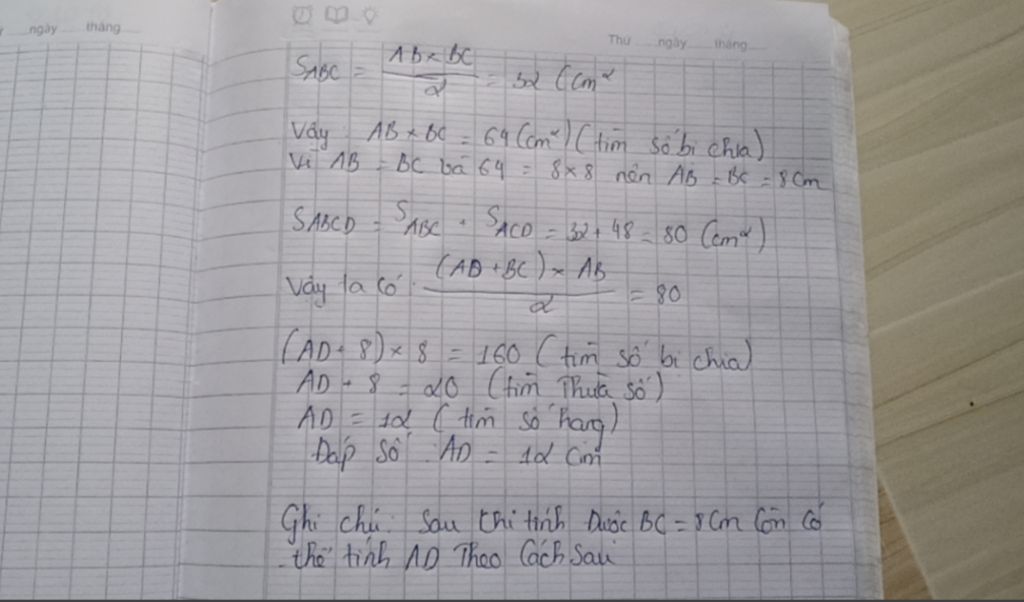 ngày tháng
Thứ ngày tháng
S_ABC = (AB × BC)/2 = 32 (cm²
Vậy AB × BC = 64 (cm²) (tìm số bị chia)
Vì AB = BC và 64 = 8 × 8 nên AB = BC = 8cm
SABCD = S_ABC + S_ACD = 32 + 48 = 80 (cm²)
Vậy ta có ((AD + BC) × AB)/2 = 80
(AD + 8) × 8 = 160 (tìm số bị chia)
AD + 8 = 20 (tìm Thừa số)
AD = 12 (tìm số hạng)
Đáp số : AD = 12 cm
Ghi chú: Sau khi tính Được BC = 8cm Còn có
thể tính AD Theo Cách Sau